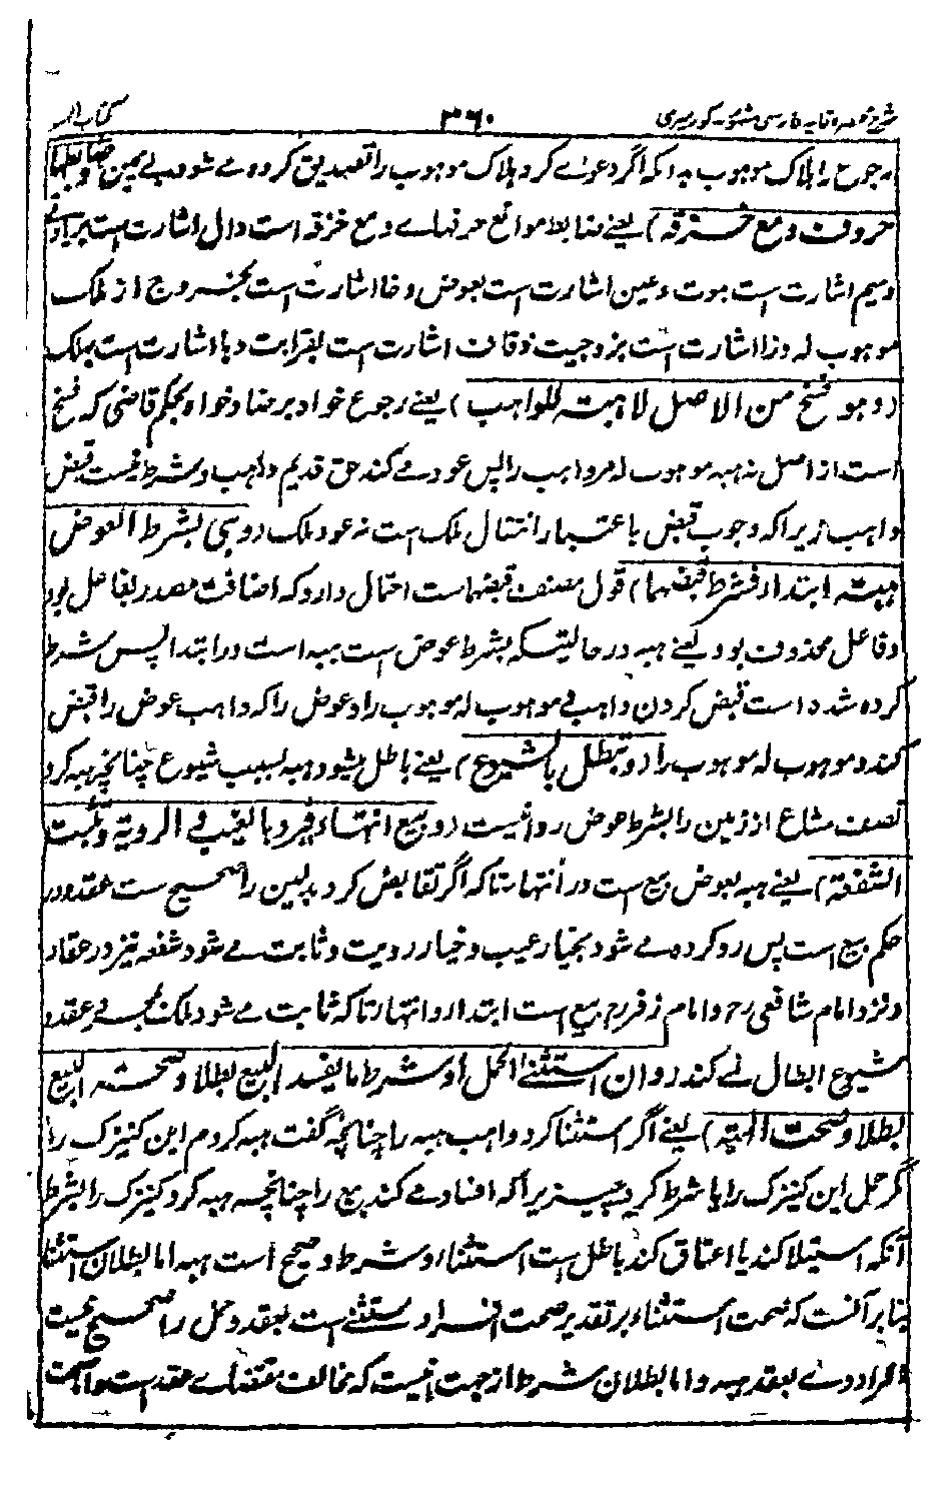 شرح مختصر وقایه فارسی مشہور بکورمیری ۳۶۰ کتاب الہ
رجوع را ہلاک موہوب بدانکہ اگر دعوے کرد ہلاک موہوب را تصدیق کردہ مے شود بے یمین (وضابطہا
حروف دمع خزقہ) یعنے ضابط موانع حرفہاے دمع خزقہ است دال اشارت ست بزیادتی
ومیم اشارت ست بموت وعین اشارت ست بعوض وخا اشارت ست بخروج از ملک
موہوب لہ وزا اشارت ست بزوجیت وقاف اشارت ست بقرابت وہا اشارت ست بہلاک
(وہو فسخ من الاصل لا ہبتہ للواہب) یعنے رجوع خواہ برضا وخواہ بحکم قاضی کہ فسخ
است از اصل نہ ہبہ موہوب لہ مر واہب را پس عود مے کند حق قدیم واہب وشرط نیست قبض
واہب زیرا کہ وجوب قبض باعتبار انتقال ملک ست نہ عود ملک (وہی بشرط العوض
ہبتہ ابتداء فشرط قبضہما) قول مصنف قبضہما ست احتمال دارد کہ اضافت مصدر بفاعل بود
وفاعل محذوف بود یعنے ہبہ در حالتیکہ بشرط عوض ست ہبہ است در ابتدا پس شرط
کردہ شدہ است قبض کردن واہب وموہوب لہ موہوب را وعوض را کہ واہب عوض را قبض
کند وموہوب لہ موہوب را (وتبطل بالشیوع) یعنے باطل میشود ہبہ بسبب شیوع چنانچہ ہبہ کرد
نصف مشاع از زمین را بشرط عوض روا نیست (وبیع انتہاء فیرد بالعیب والرویۃ وتثبت
الشفعۃ) یعنے ہبہ بعوض بیع ست در انتہا تا کہ اگر تقابض کرد بدلین را صحیح ست عقد ودر
حکم بیع است پس رد کردہ مے شود بخیار عیب وخیار رویت وثابت مے شود شفعہ نیز در عقار
ونزد امام شافعی رح وامام زفر رح بیع ست ابتداء وانتہاء تا کہ ثابت مے شود ملک بمجرد عقد و
شیوع ابطال نے کند (وان استثنے الحمل او شرط ما یفسد البیع بطلا وصحتہ البیع
بطلا وصحت الہبتہ) یعنے اگر استثنا کرد واہب ہبہ را چنانچہ گفت ہبہ کردم این کنیزک را
مگر حمل این کنیزک را یا شرط کرد چیزیرا کہ افساد مے کند بیع را چنانچہ ہبہ کرد کنیزک را بشرط
آنکہ استیلا کند یا اعتاق کند باطل ست استثناء وشرط وصحیح است ہبہ اما بطلان استثنا
بنابر آنست کہ صحت استثناء بر تقدیر صحت افراد مستثنے ست بعقد وحمل را صحیح نیست
افراد وے بعقد ہبہ واما بطلان شرط از جہت اینست کہ مخالف مقتضاے عقد ست واما صحت